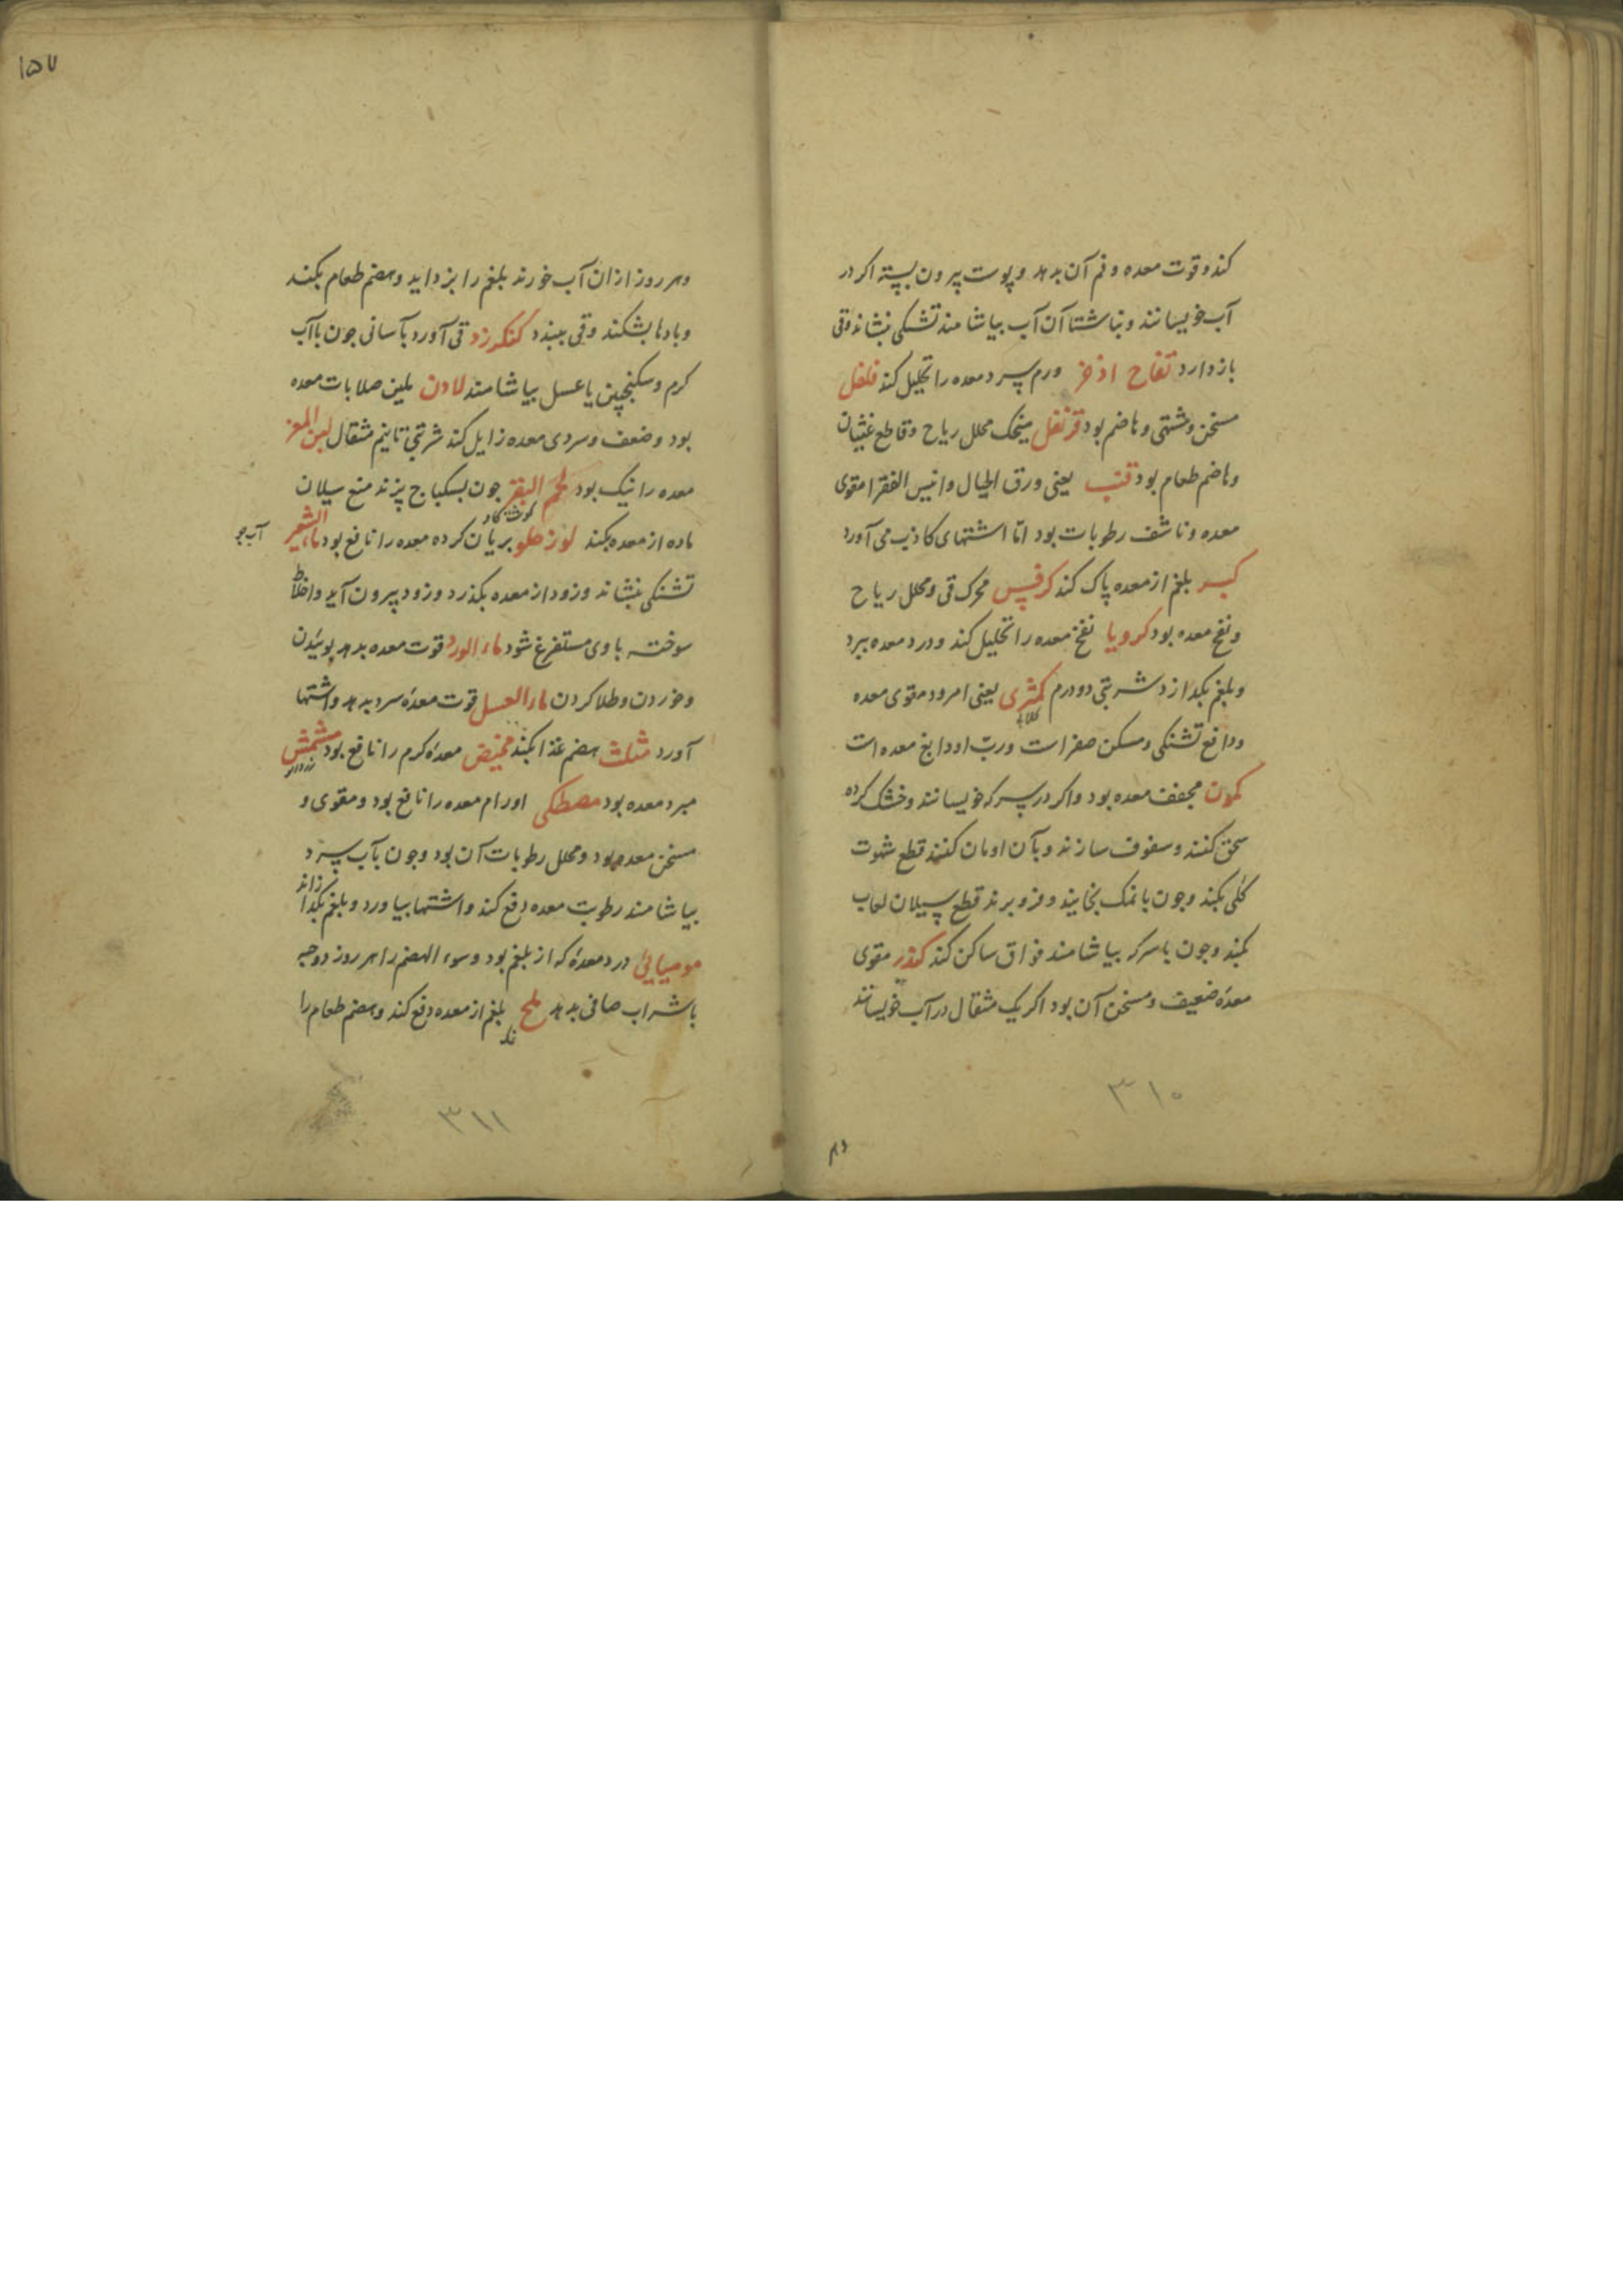 کند و قوت معده و فم آن بدهد و پوست پیرون پسته اکر در
آب خویسانند و بناشتا آن آب بیاشامند تشنکی بنشاند و قی
باز دارد تفاح اذخر ورم سرد معده را تحلیل کند فلفل
مسخن و مشتهی و هاضم بود قرنفل میخک محلل ریاح و قاطع غثیان
و هاضم طعام بود قنب یعنی ورق الخیال و انیس الفقرا مقوی
معده و ناشف رطوبات بود امّا اشتهای کاذب می آورد
کبر بلغم از معده پاک کند کرفس محرک قی و محلل ریاح
و نفخ معده بود کرویا نفخ معده را تحلیل کند و درد معده ببرد
و بلغم بکدازد شربتی دو درم کمثری یعنی امرود مقوی معده
کلابی
و دافع تشنکی و مسکن صفراست و ربّ او دابغ معده است
کمون مجفف معده بود و اکر در سرکه خویسانند و خشک کرده
سحق کنند و سفوف سازند و بآن ادمان کنند قطع شهوت
کلی بکند و جون با نمک بخایند و فرو برند قطع سیلان لعاب
بکند و جون با سرکه بیاشامند فواق ساکن کند کندر مقوی
معدهٔ ضعیف و مسخن آن بود اکر یک مثقال در آب خویسانند
۳۱۰
۱۵۷
و هر روز از ان آب خورند بلغم را بزداید و هضم طعام بکند
و بادها بشکند و قی ببندد کنکرزد قی آورد بآسانی جون با آب
کرم و سکنجبین یا عسل بیاشامند لادن ملین صلابات معده
بود و ضعف و سردی معده زایل کند شربتی تا نیم مثقال لبن المعز
معده را نیک بود لحم البقر جون بسکباج پزند منع سیلان
کوشت کاو
ماده از معده بکند لوز حلو بریان کرده معده را نافع بود ماء الشعیر
آب جو
تشنکی بنشاند و زود از معده بکذرد و زود پیرون آید و اخلاط
سوخته با وی مستفرغ شود ماء الورد قوت معده بدهد بوئیدن
و خوردن و طلا کردن ماء العسل قوت معدهٔ سرد بدهد و اشتها
آورد مثلث هضم غذا بکند مخیض معدهٔ کرم را نافع بود مشمش
زردالو
مبرد معده بود مصطکی اورام معده را نافع بود و مقوی و
مسخن معده بود و محلل رطوبات آن بود و جون بآب سرد
بیاشامند رطوبت معده دفع کند و اشتها بیاورد و بلغم بکدازاند
مومیایی درد معدهٔ که از بلغم بود و سوء الهضم را هر روز دو حبه
با شراب صافی بدهد ملح بلغم از معده دفع کند و هضم طعام را
۳۱۱